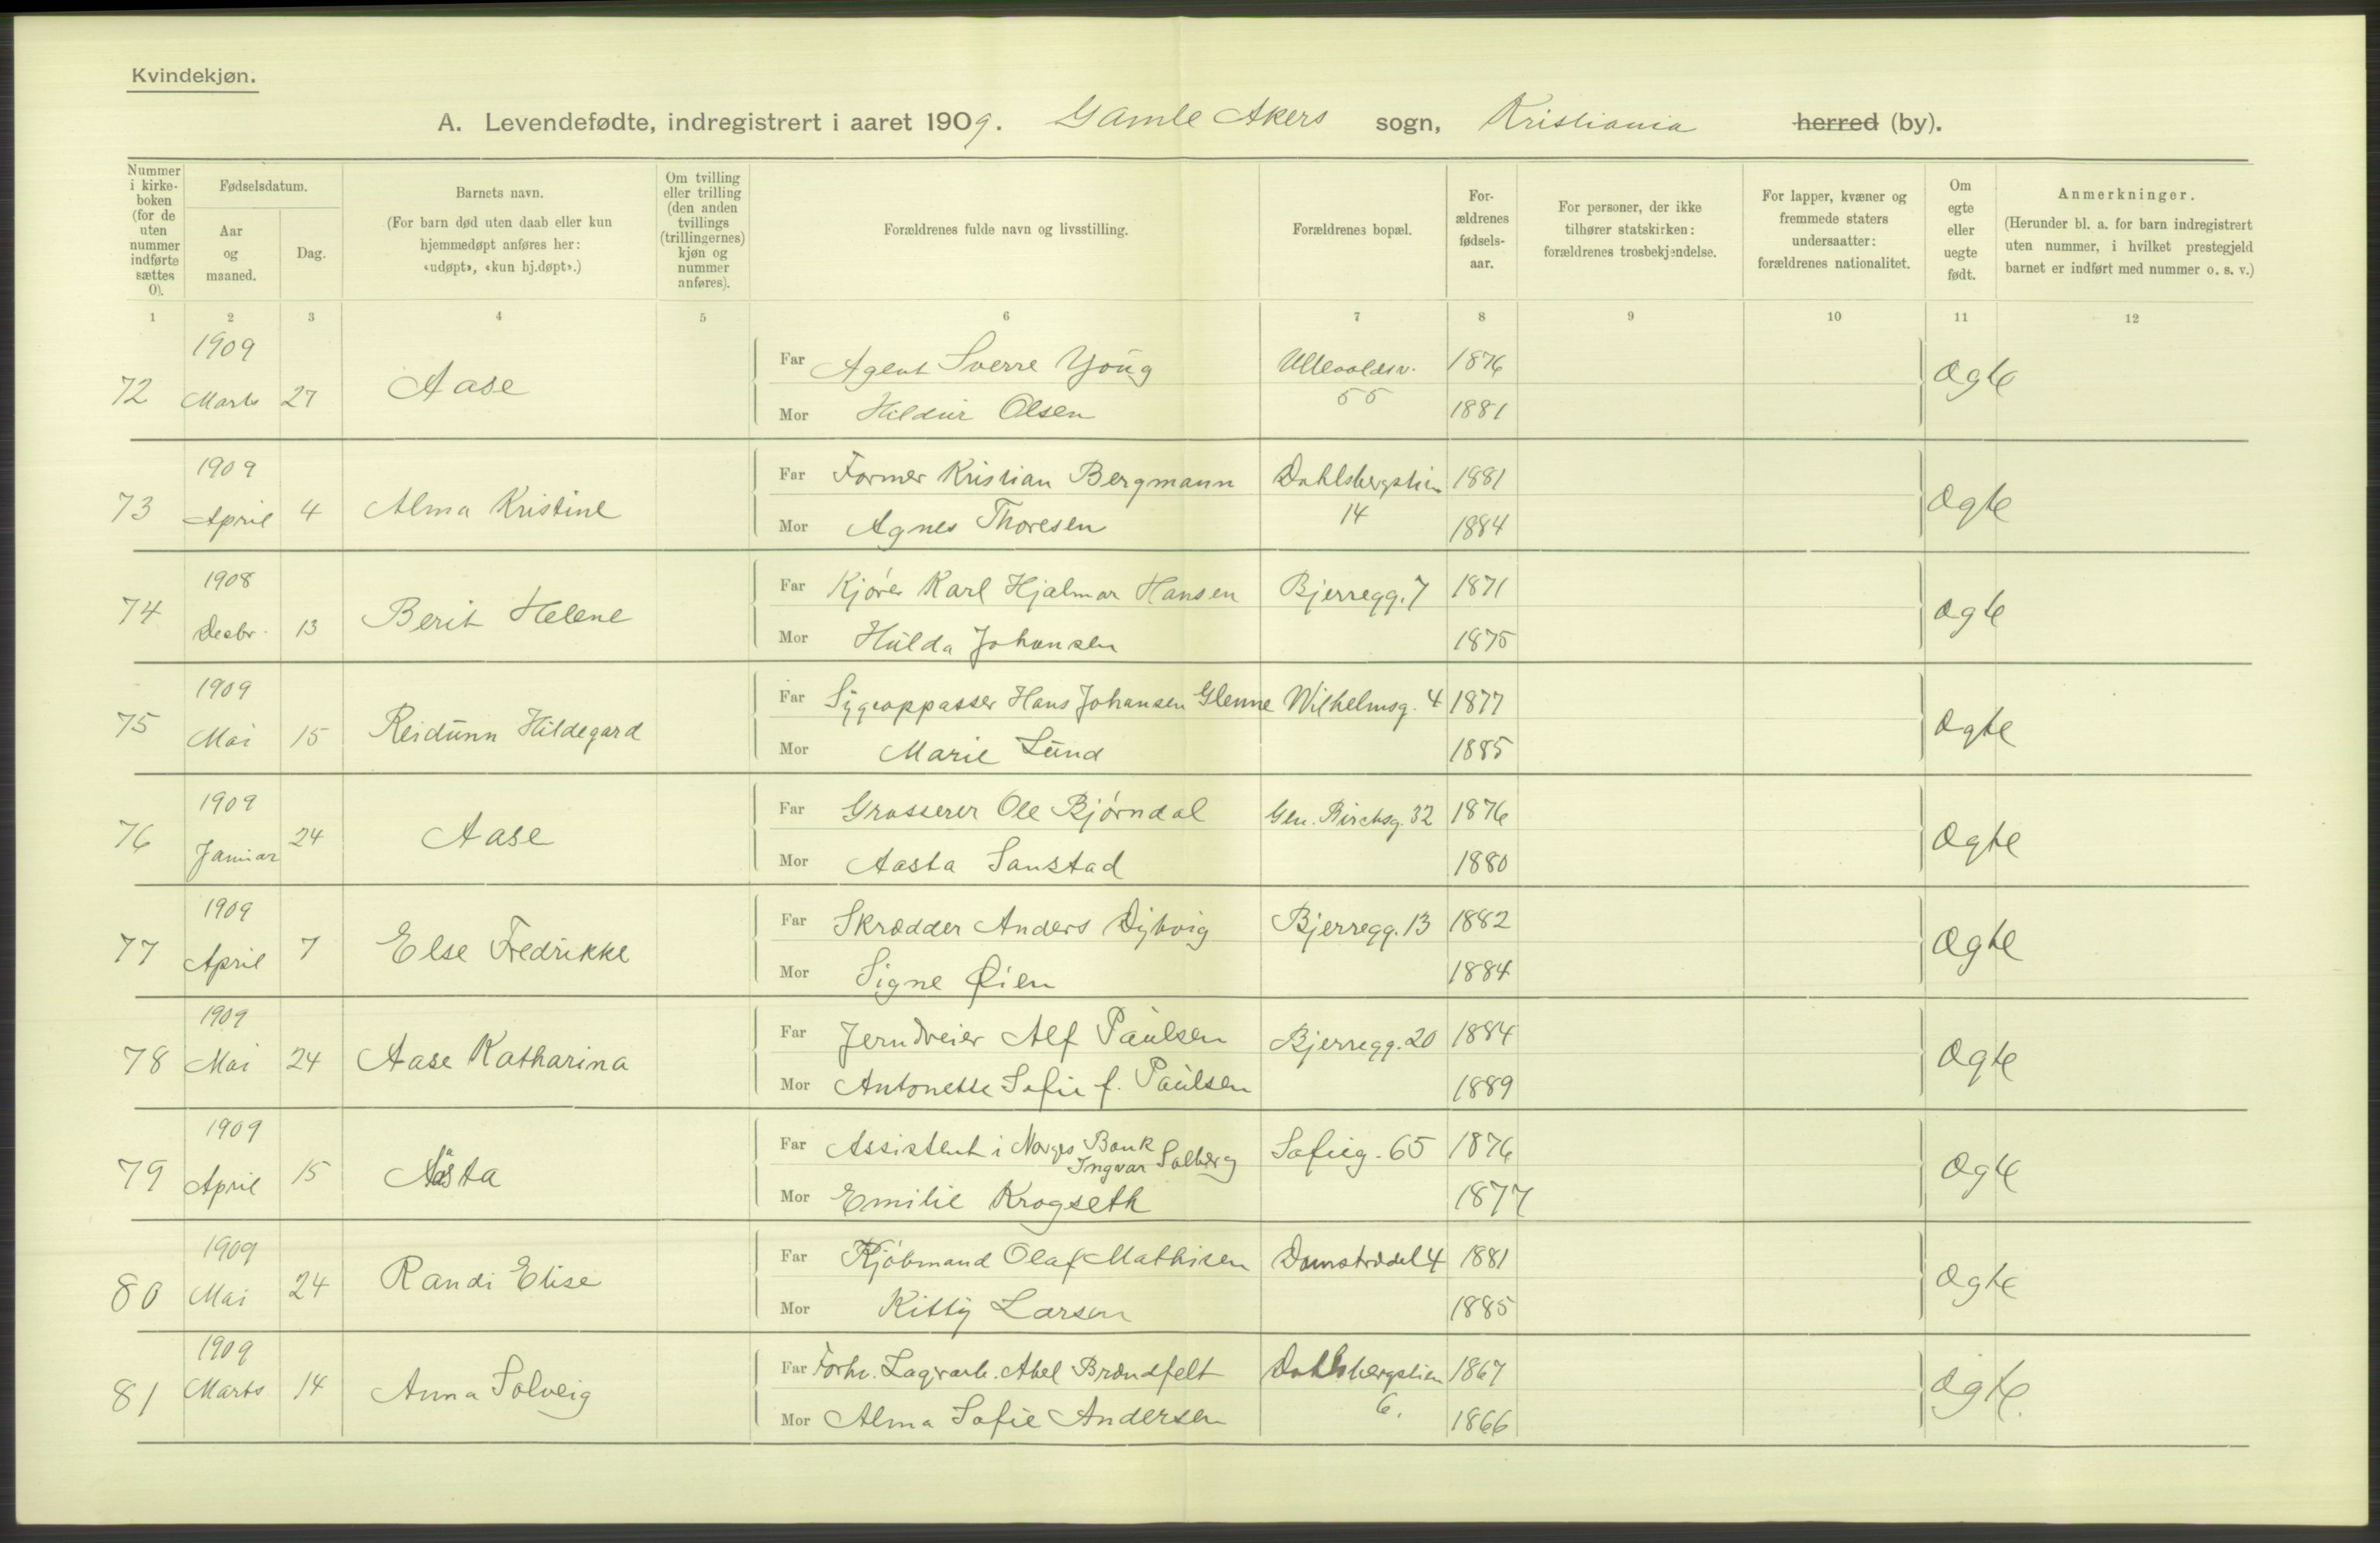 Kvindekjøn.
A. Levendefødte, indregistrert i aaret 1909. Gamle Akers sogn, Kristiania herred (by).
Nummer i kirke-boken (for de uten nummer indførte sættes 0).
Fødselsdatum.
Aar og maaned.
Dag.
Barnets navn.
(For barn død uten daab eller kun hjemmedøpt anføres her: «udøpt», «kun hj.døpt».)
Om tvilling eller trilling (den anden tvillings (trillingernes) kjøn og nummer anføres).
Forældrenes fulde navn og livsstilling.
Forældrenes bopæl.
For-ældrenes fødsels-aar.
For personer, der ikke tilhører statskirken: forældrenes trosbekjendelse.
For lapper, kvæner og fremmede staters undersaatter: forældrenes nationalitet.
Om egte eller uegte født.
Anmerkninger.
(Herunder bl. a. for barn indregistrert uten nummer, i hvilket prestegjeld barnet er indført med nummer o. s. v.)
1 2 3 4 5 6 7 8 9 10 11 12
1909
72 Marts 27 Aase Far Agent Sverre Young Ullevoldsv. 55 1876 Ægte
Mor Hildur Olsen 1881
1909
73 April 4 Alma Kristine Far Former Kristian Bergmann Dahlsbergstien 14 1881 Ægte
Mor Agnes Thoresen 1884
1908
74 Desbr. 13 Berit Helene Far Kjører Karl Hjalmar Hansen Bjerregg. 7 1871 Ægte
Mor Hulda Johansen 1875
1909
75 Mai 15 Reidunn Hildegard Far Sygeoppasser Hans Johansen Glenne Wilhelmsg. 4 1877 Ægte
Mor Marie Lund 1885
1909
76 Januar 24 Aase Far Grosserer Ole Bjørndal Gen. Birchsg. 32 1876 Ægte
Mor Aasta Sanstad 1880
1909
77 April 7 Else Fredrikke Far Skrædder Anders Dybvig Bjerregg. 13 1882 Ægte
Mor Signe Øien 1884
1909
78 Mai 24 Aase Katharina Far Jerndreier Alf Paulsen Bjerregg. 20 1884 Ægte
Mor Antonette Sofie f. Paulsen 1889
1909
79 April 15 Aasta Far Assistent i Norges Bank Ingvar Solberg Sofieg. 65 1876 Ægte
Mor Emilie Krogseth 1877
1909
80 Mai 24 Randi Elise Far Kjøbmand Olaf Mathisen Damstrædet 4 1881 Ægte
Mor Kitty Larsen 1885
1909
81 Marts 14 Anna Solveig Far Forhv. Lagrarb. Abel Brændfelt Dahlsbergstien 6. 1867 Ægte.
Mor Alma Sofie Andersen 1866